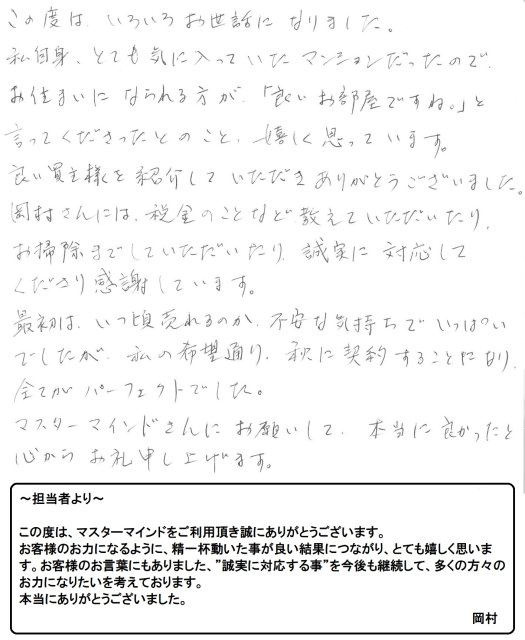 この度は、いろいろお世話になりました。
私自身、とても気に入っていたマンションだったので、
お住まいになられる方が、「良いお部屋ですね。」と
言ってくださったとのこと、嬉しく思っています。
良い買主様を紹介していただきありがとうございました。
岡村さんには、税金のことなど教えていただいたり、
お掃除までしていただいたり、誠実に対応して
くださり感謝しています。
最初は、いつ頃売れるのか、不安な気持ちでいっぱい
でしたが、私の希望通り、秋に契約することになり、
全てがパーフェクトでした。
マスターマインドさんにお願いして、本当に良かったと
心からお礼申し上げます。
～担当者より～
この度は、マスターマインドをご利用頂き誠にありがとうございます。
お客様のお力になるように、精一杯動いた事が良い結果につながり、とても嬉しく思いま
す。お客様のお言葉にもありました、”誠実に対応する事”を今後も継続して、多くの方々の
お力になりたいを考えております。
本当にありがとうございました。
岡村